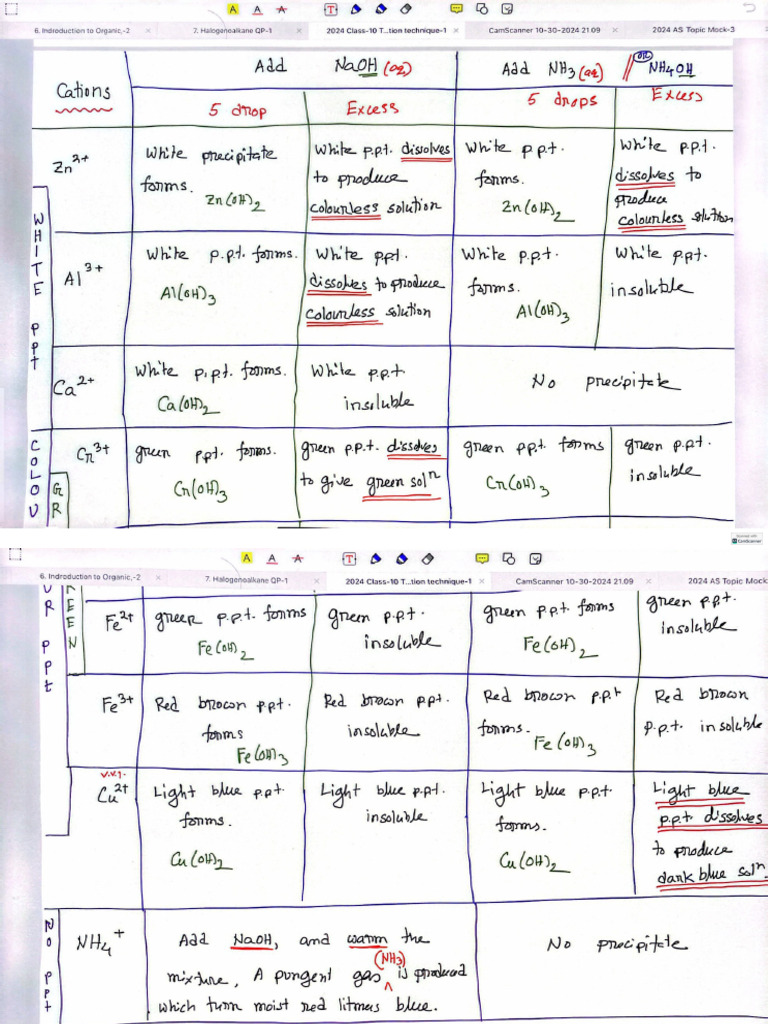 6. Indroduction to Organic,-2
7. Halogenoalkane QP-1
2024 Class-10 T...tion technique-1
CamScanner 10-30-2024 21.09
2024 AS Topic Mock-3
Cations
Add NaOH (aq)
Add NH3 (aq) // OR NH4OH
5 drop
Excess
5 drops
Excess
Zn2+
White precipitate
forms.
Zn(OH)2
White p.p.t. dissolves
to produce
colourless solution
White p.p.t.
forms.
Zn(OH)2
White p.p.t.
dissolves to
produce
colourless solution
WHITE ppt
Al3+
White p.p.t. forms.
Al(OH)3
White ppt.
dissolves to produce
colourless solution
White p.p.t.
forms.
Al(OH)3
White p.p.t.
insoluble
Ca2+
White p.p.t. forms.
Ca(OH)2
White p.p.t
insoluble
No precipitate
COLOU
GR
Cr3+
green ppt. forms.
Cr(OH)3
green p.p.t. dissolves
to give green soln
green pp.t forms
Cr(OH)3
green p.p.t.
insoluble
CamScanner
6. Indroduction to Organic,-2
7. Halogenoalkane QP-1
2024 Class-10 T...tion technique-1
CamScanner 10-30-2024 21.09
2024 AS Topic Mock
UR ppt
REEN
Fe2+
green p.p.t. forms
Fe(OH)2
green p.p.t.
insoluble
green ppt forms
Fe(OH)2
green p.p.t.
insoluble
Fe3+
Red brown p.p.t.
forms
Fe(OH)3
Red brown ppt.
insoluble
Red brown p.p.t
forms.
Fe(OH)3
Red brown
p.p.t. insoluble
v.v.I.
Cu2+
Light blue p.p.t
forms.
Cu(OH)2
Light blue p.p.t.
insoluble
Light blue p.p.t
forms.
Cu(OH)2
Light blue
p.p.t dissolves
to produce
dark blue soln.
No ppt
NH4+
Add NaOH, and warm the
mixture, A pungent gas (NH3) is produced
which turn moist red litmus blue.
No precipitate